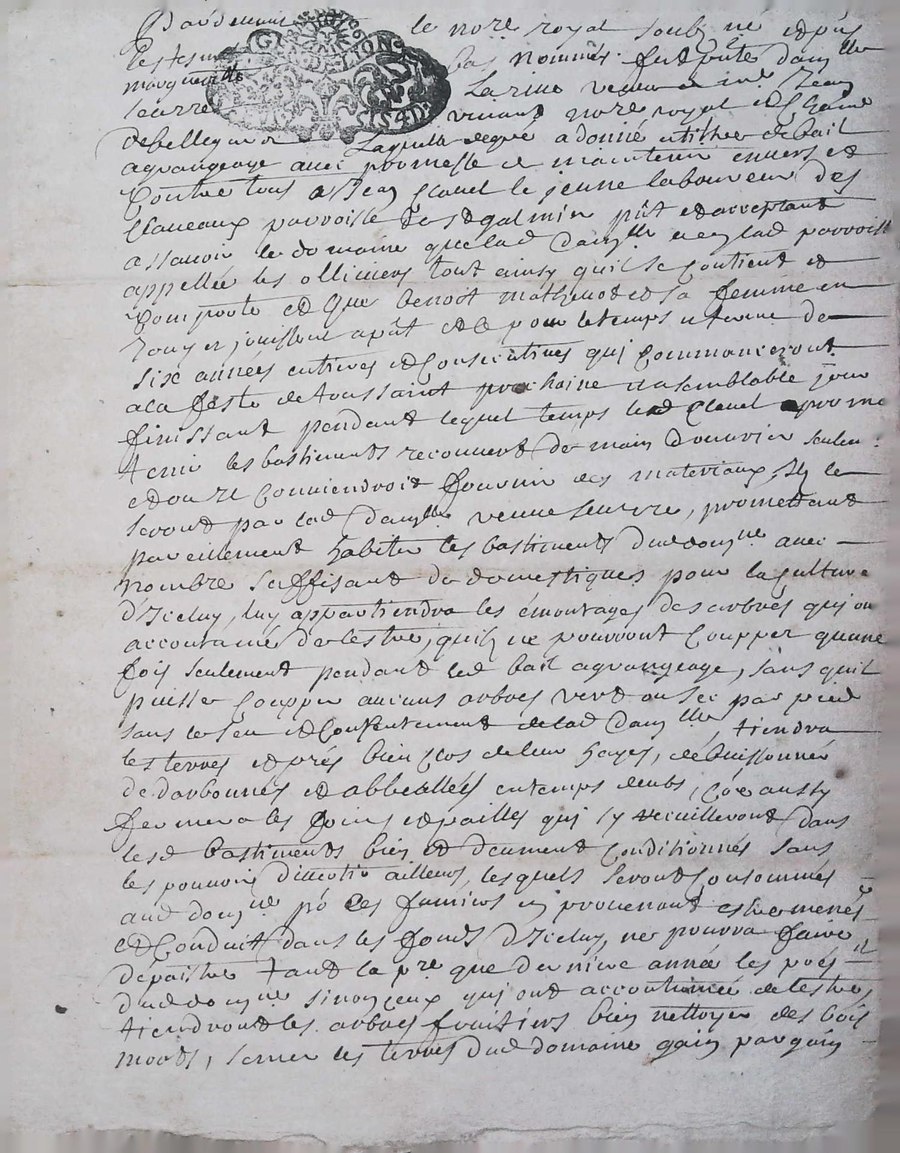 Pardevant le nore royal soubz.ne et pñs
les tesm bas nommés. fut pñte damlle
marguerite La rive veuve
Leurre vivant nore royal
de bellegarde Laquelle de gré a donné a tiltre de bail
agrangeage avec promesse de maintenir envers et
Contre tous a Jean Clavel le jeune laboureur des
Claveaux parroisse de st galmier pñt et acceptant
assavoir le domaine que lad Damlle a en lad parroisse
appellée les olliviers tout ainsy qu'il se Contient et
Comporte et que benoist mathevot et sa femme en
jouissent apñt et ce pour le temps et terme de
six années entieres et Consecutives qui Commanceront
a la feste de toussaint prochaine et a semblable jour
finissant pendant lequel temps led Clavel promet
tenir les bastiments recouvert de main d'ouvrier seulem
et ou il Conviendroit fournir des materiaux, ils le
seront par lad Damlle veuve Leurre, promettant
pareillement habiter les bastiments dud domne avec
nombre suffisant de domestiques pour la Culture
d'Iceluy, luy appartiendra les émourages des arbres qui on
accoutumé de lestre, quil ne pourront Coupper qu'une
fois seulement pendant led bail agrangeage, sans quil
puisse Coupper aucuns arbres vert ou sec par pied
sans le seu et Consentement de lad Damlle, tiendra
les terres et prés bien Clos de leur hayes, debuissonnés
dedarbonnés et abbeallés en temps deub, Comme aussy
fermera les foins et pailles qui s'y recuilleront dans
lesd bastiments bien et deument Conditionnés sans
les pouvoir divertir ailleurs, lesquels seront Consommés
aud domne pr les fumiers en provenant estre menés
et Conduit dans les fonds d'Iceluy, ne pourra faire
depaistre tant la pre que derniere année les prés
dud domne sinon Ceux qui ont accoutumé de lestre,
tiendront les arbres fruitiers bien nettoyer des bois
morts, semer les terres dud domaine gain par gain